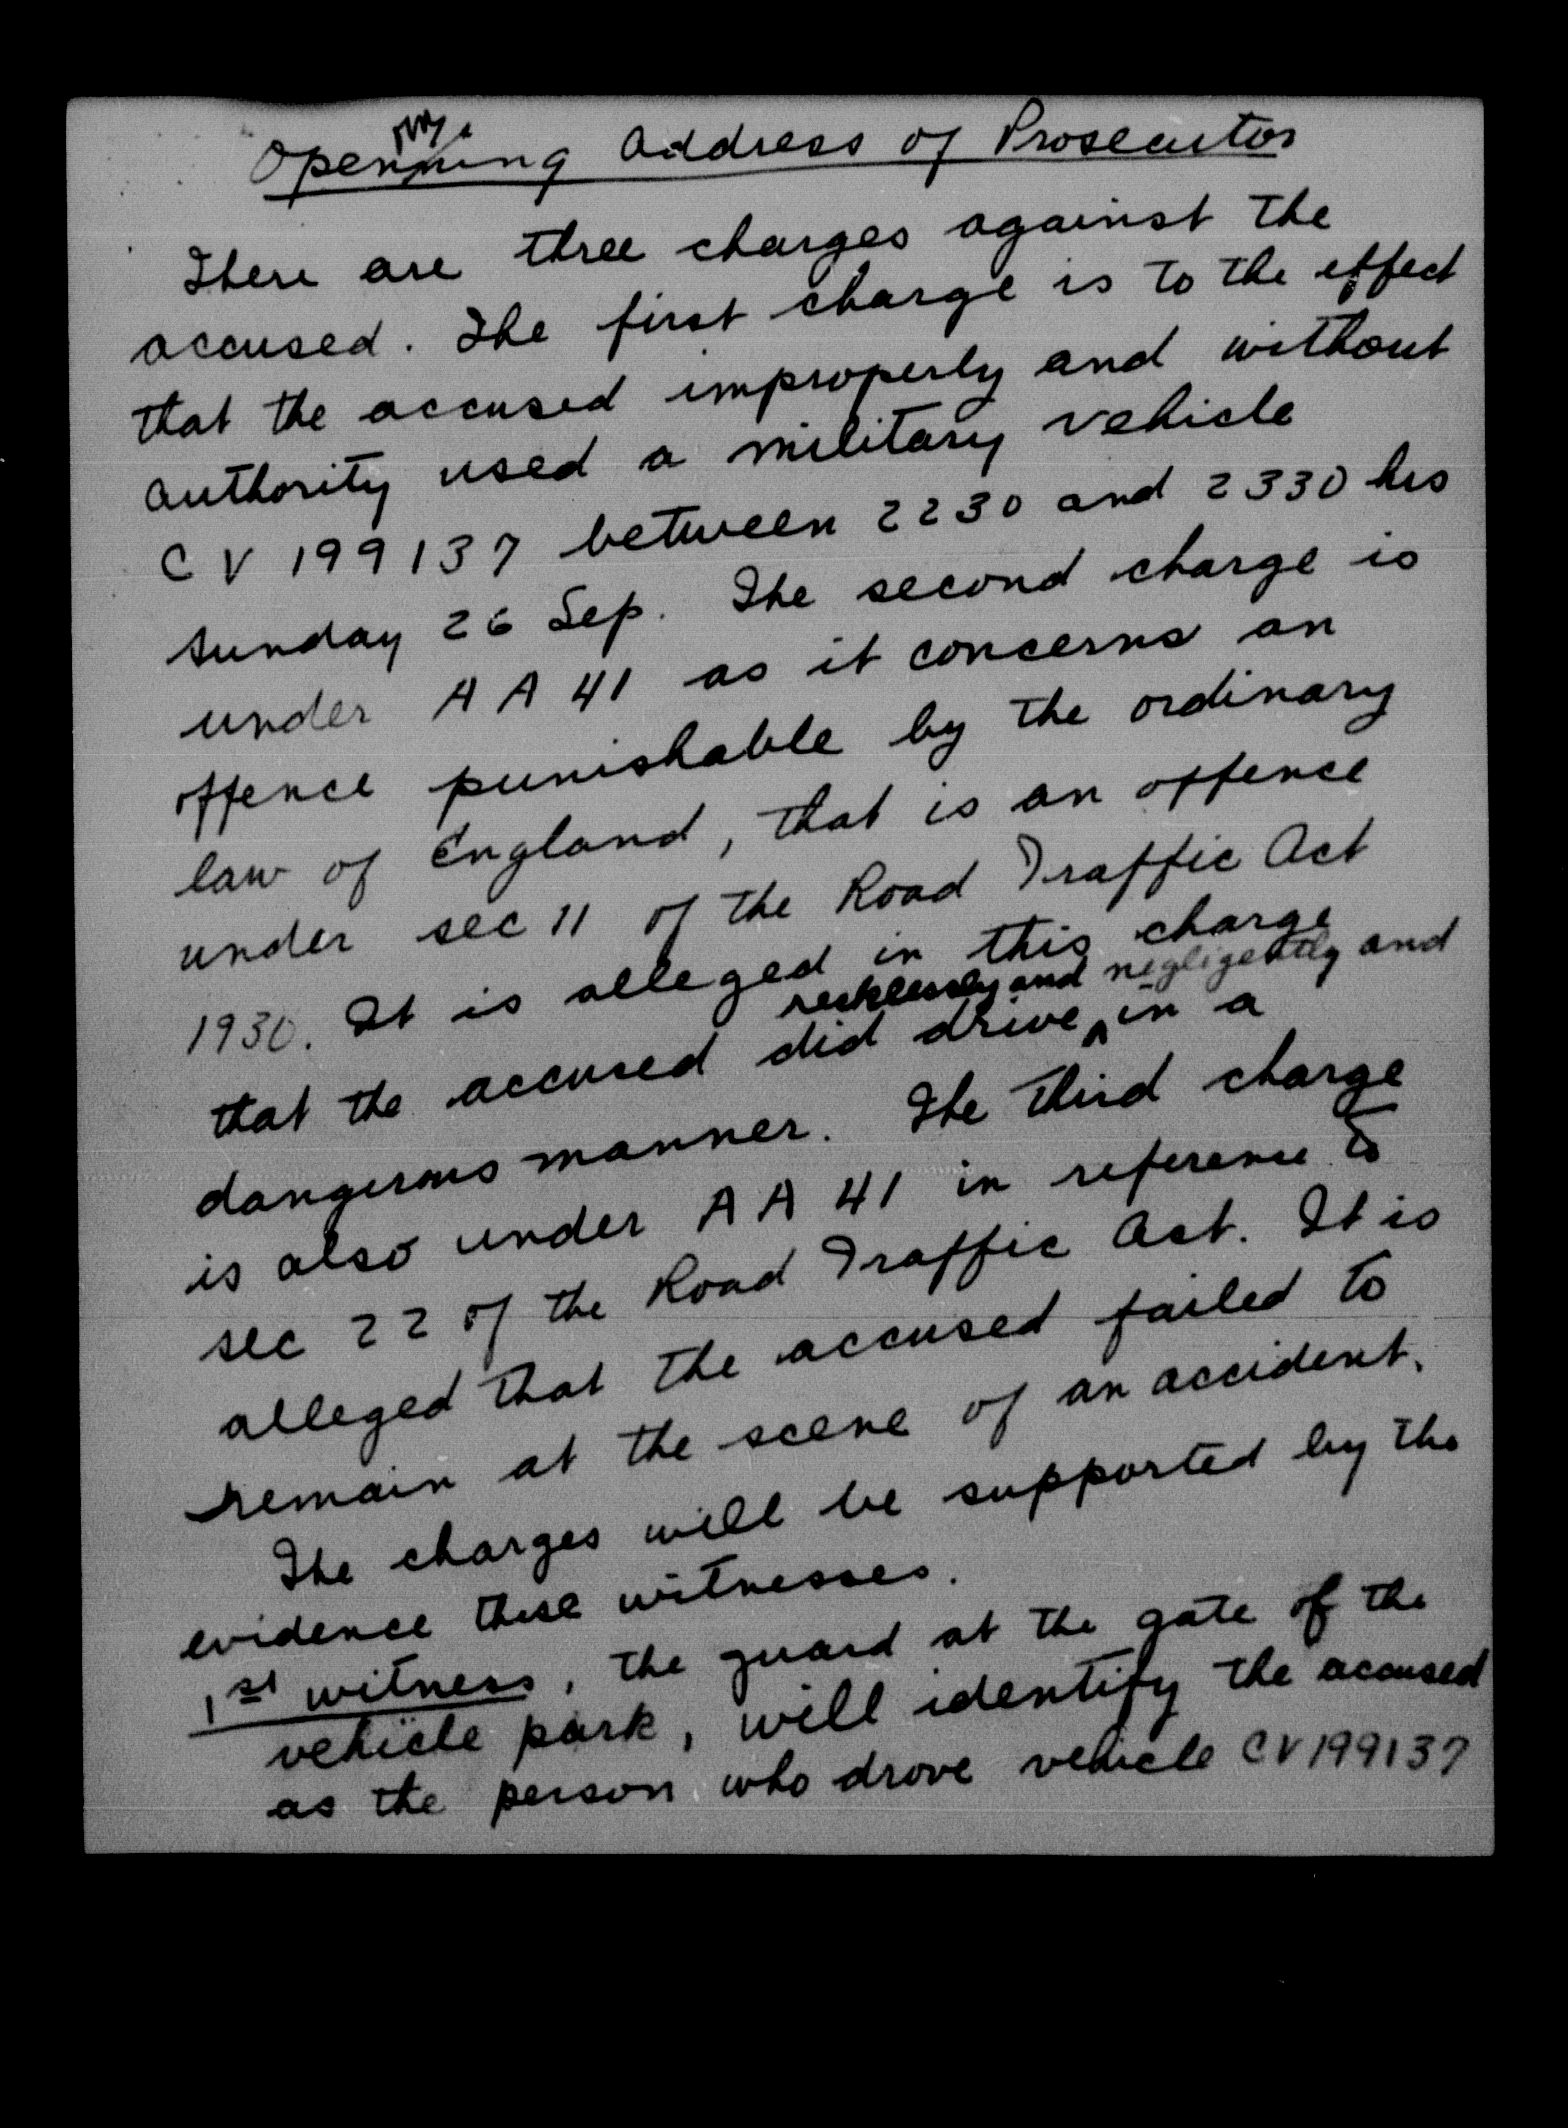 Opening Address of Prosecutor
There are three charges against the
accused. The first charge is to the effect
that the accused improperly and without
authority used a military vehicle
CV 199137 between 2230 and 2330 hrs
Sunday 26 Sep. The second charge is
under AA 41 as it concerns an
offence punishable by the ordinary
law of England, that is an offence
under sec 11 of the Road Traffic Act
1930. It is alleged in this charge
recklessly and negligently and
that the accused did drive ^ in a
dangerous manner. The third charge
is also under AA 41 in reference to
sec 22 of the Road Traffic Act. It is
alleged that the accused failed to
remain at the scene of an accident.
The charges will be supported by the
evidence these witnesses.
1st witness, the guard at the gate of the
vehicle park, will identify the accused
as the person who drove vehicle CV199137